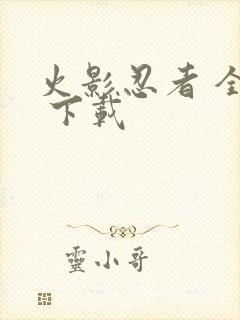 火影忍者 全
下載
靈小哥